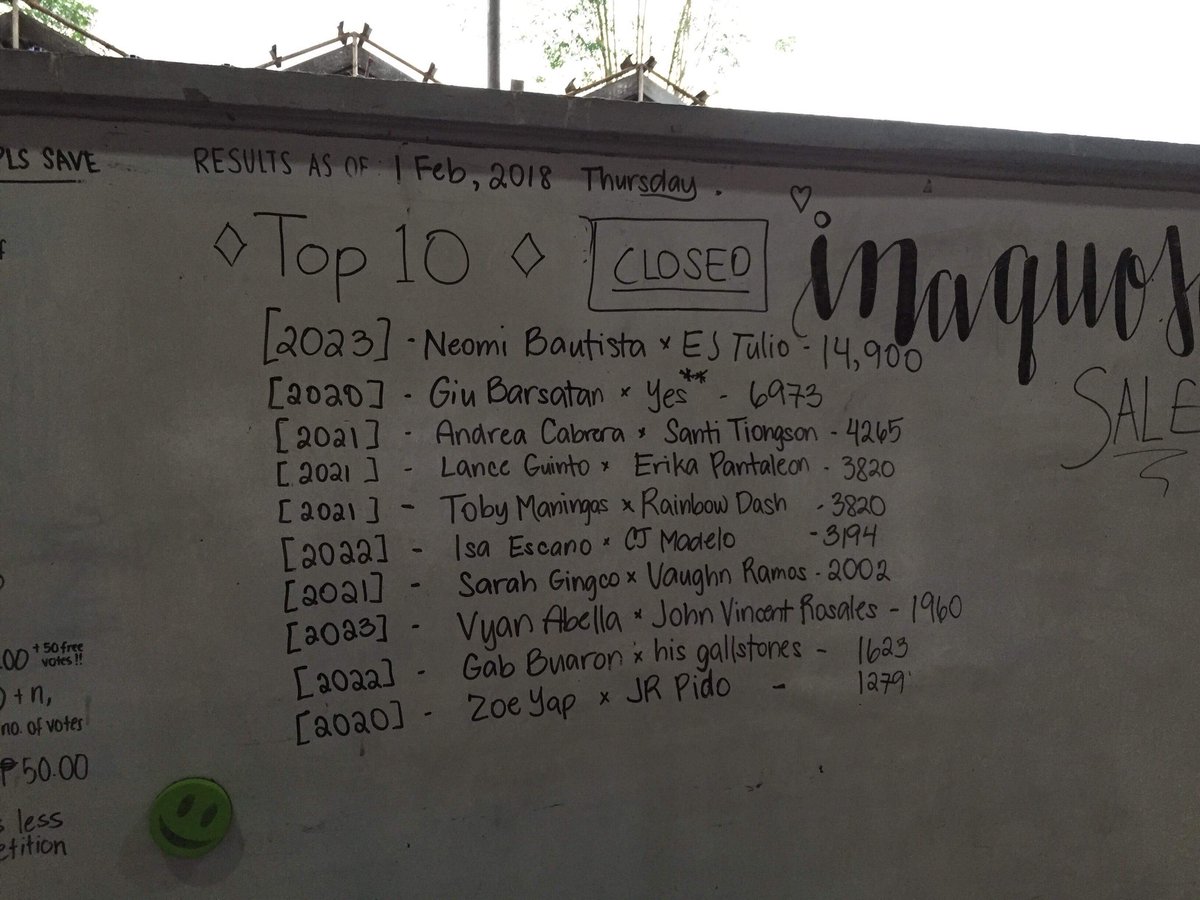 PLS SAVE
RESULTS AS OF : 1 Feb, 2018 Thursday.
◇ Top 10 ◇
CLOSED
♡
inaquos
SALE
[2023] - Neomi Bautista × EJ Tulio - 14,900
[2020] - Giu Barsatan × Yes** - 6973
[2021] - Andrea Cabrera × Santi Tiongson - 4265
[2021] - Lance Guinto × Erika Pantaleon - 3820
[2021] - Toby Maningas × Rainbow Dash - 3820
[2022] - Isa Escano × CJ Madelo - 3194
[2021] - Sarah Gingco × Vaughn Ramos - 2002
[2023] - Vyan Abella × John Vincent Rosales - 1960
[2022] - Gab Buaron × his gallstones - 1623
[2020] - Zoe Yap × JR Pido - 1279
.00 +50 free votes!!
) + n,
no. of votes
₱50.00
less